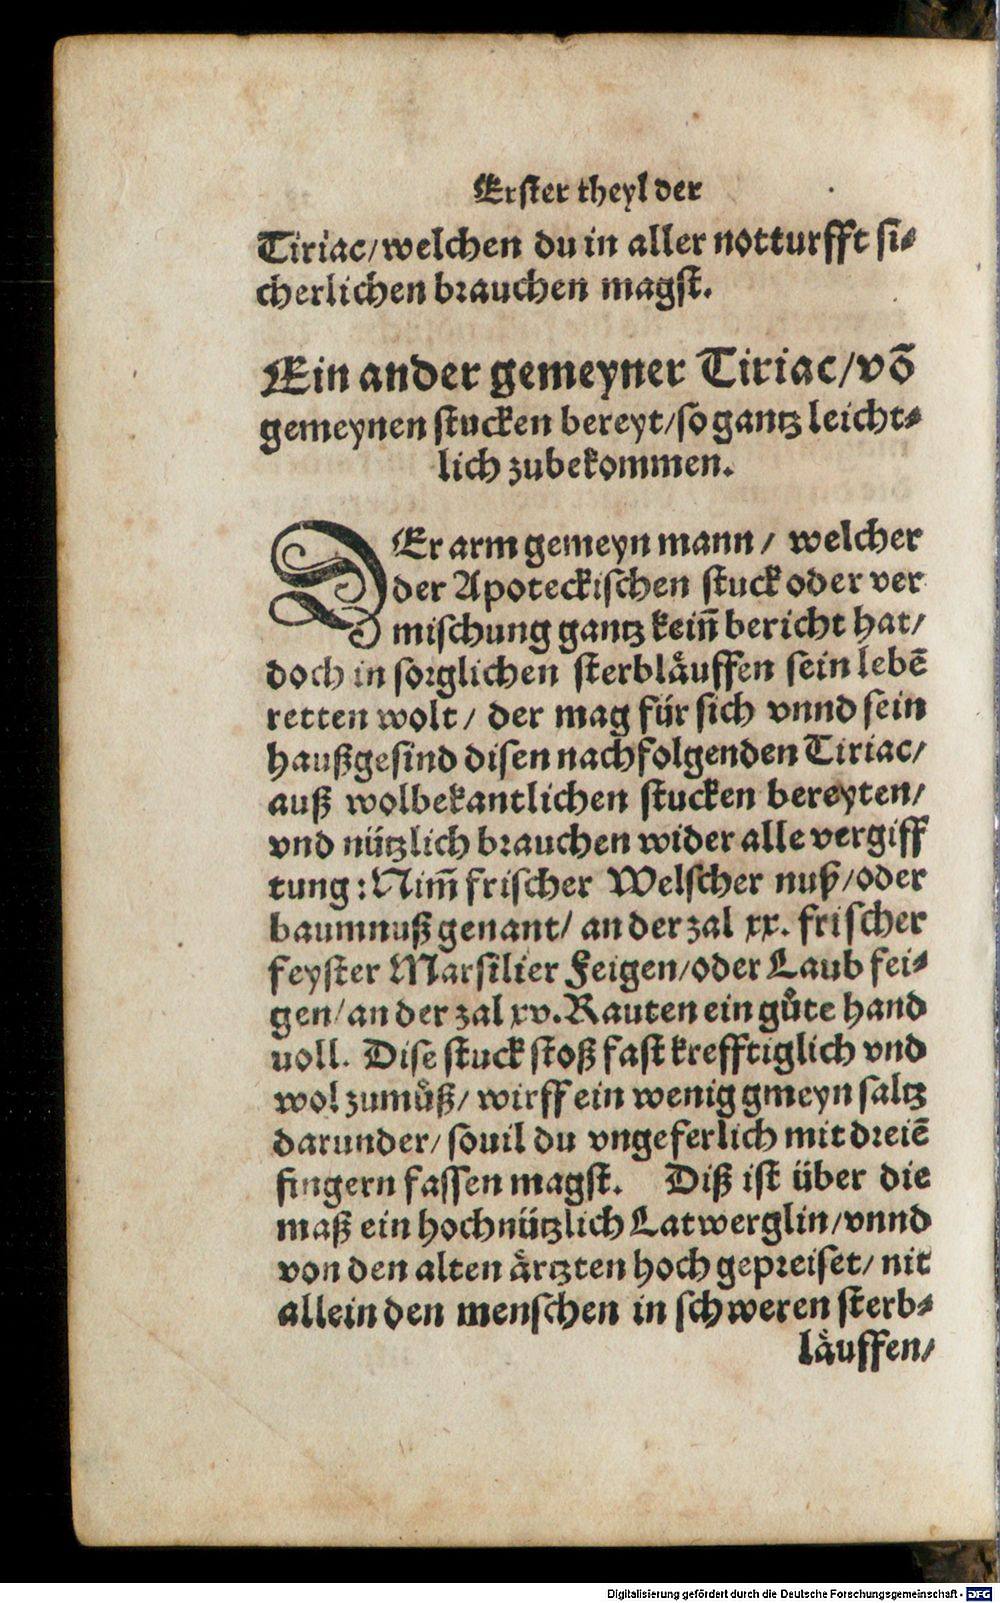 Erster theyl der
Tiriac/welchen du in aller notturfft si⸗
cherlichen brauchen magst.
Ein ander gemeyner Tiriac/võ
gemeynen stucken bereyt/so gantz leicht⸗
lich zubekommen.
DEr arm gemeyn mann/ welcher
der Apoteckischen stuck oder ver
mischung gantz keiñ bericht hat/
doch in sorglichen sterblåuffen sein lebẽ
retten wolt/ der mag für sich vnnd sein
haußgesind disen nachfolgenden Tiriac/
auß wolbekantlichen stucken bereyten/
vnd nützlich brauchen wider alle vergiff
tung: Nim̃ frischer Welscher nuß/oder
baumnuß genant/ an der zal xx. frischer
feyster Marsilier Feigen/oder Laub fei⸗
gen/an der zal xv. Rauten ein gůte hand
voll. Dise stuck stoß fast krefftiglich vnd
wol zumůß/ wirff ein wenig gmeyn saltz
darunder/ souil du vngeferlich mit dreiẽ
fingern fassen magst. Diß ist über die
maß ein hochnützlich Latwerglin/vnnd
von den alten årtzten hoch gepreiset/ nit
allein den menschen in schweren sterb⸗
låuffen/
Digitalisierung gefördert durch die Deutsche Forschungsgemeinschaft - DFG